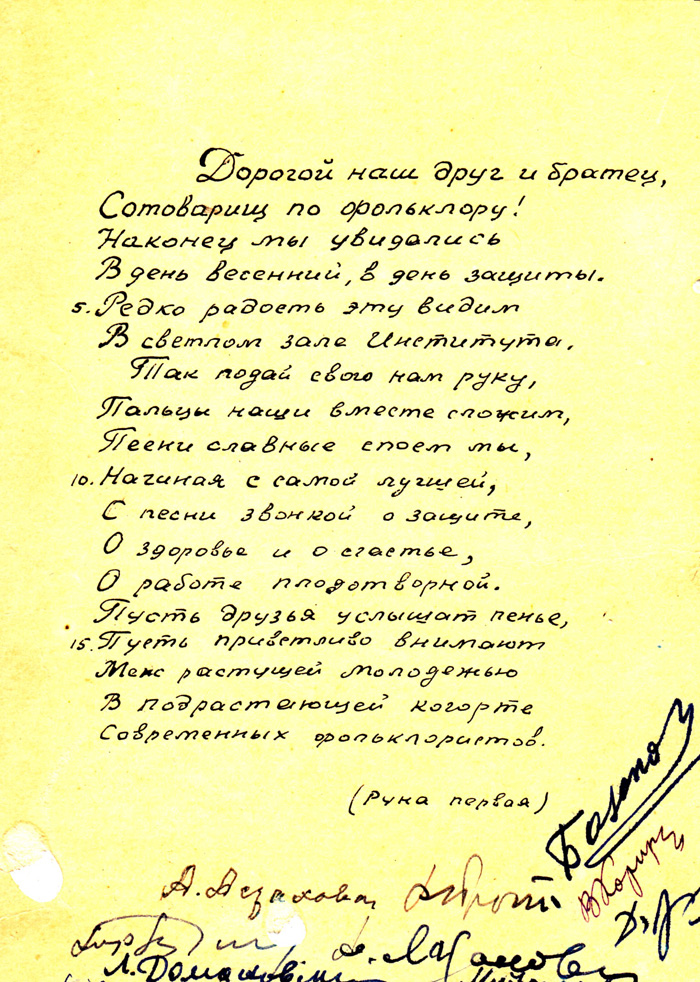 Дорогой наш друг и братец,
Сотоварищ по фольклору!
Наконец мы увидались
В день весенний, в день защиты.
5. Редко радость эту видим
В светлом зале Института.
Так подай свою нам руку,
Пальцы наши вместе сложим,
Песни славные споем мы,
10. Начиная с самой лучшей,
С песни звонкой о защите,
О здоровье и о счастье,
О работе плодотворной.
Пусть друзья услышат пенье,
15. Пусть приветливо внимают
Меж растущей молодежью
В подрастающей когорте
Современных фольклористов.
(Руна первая)
А. Астахова